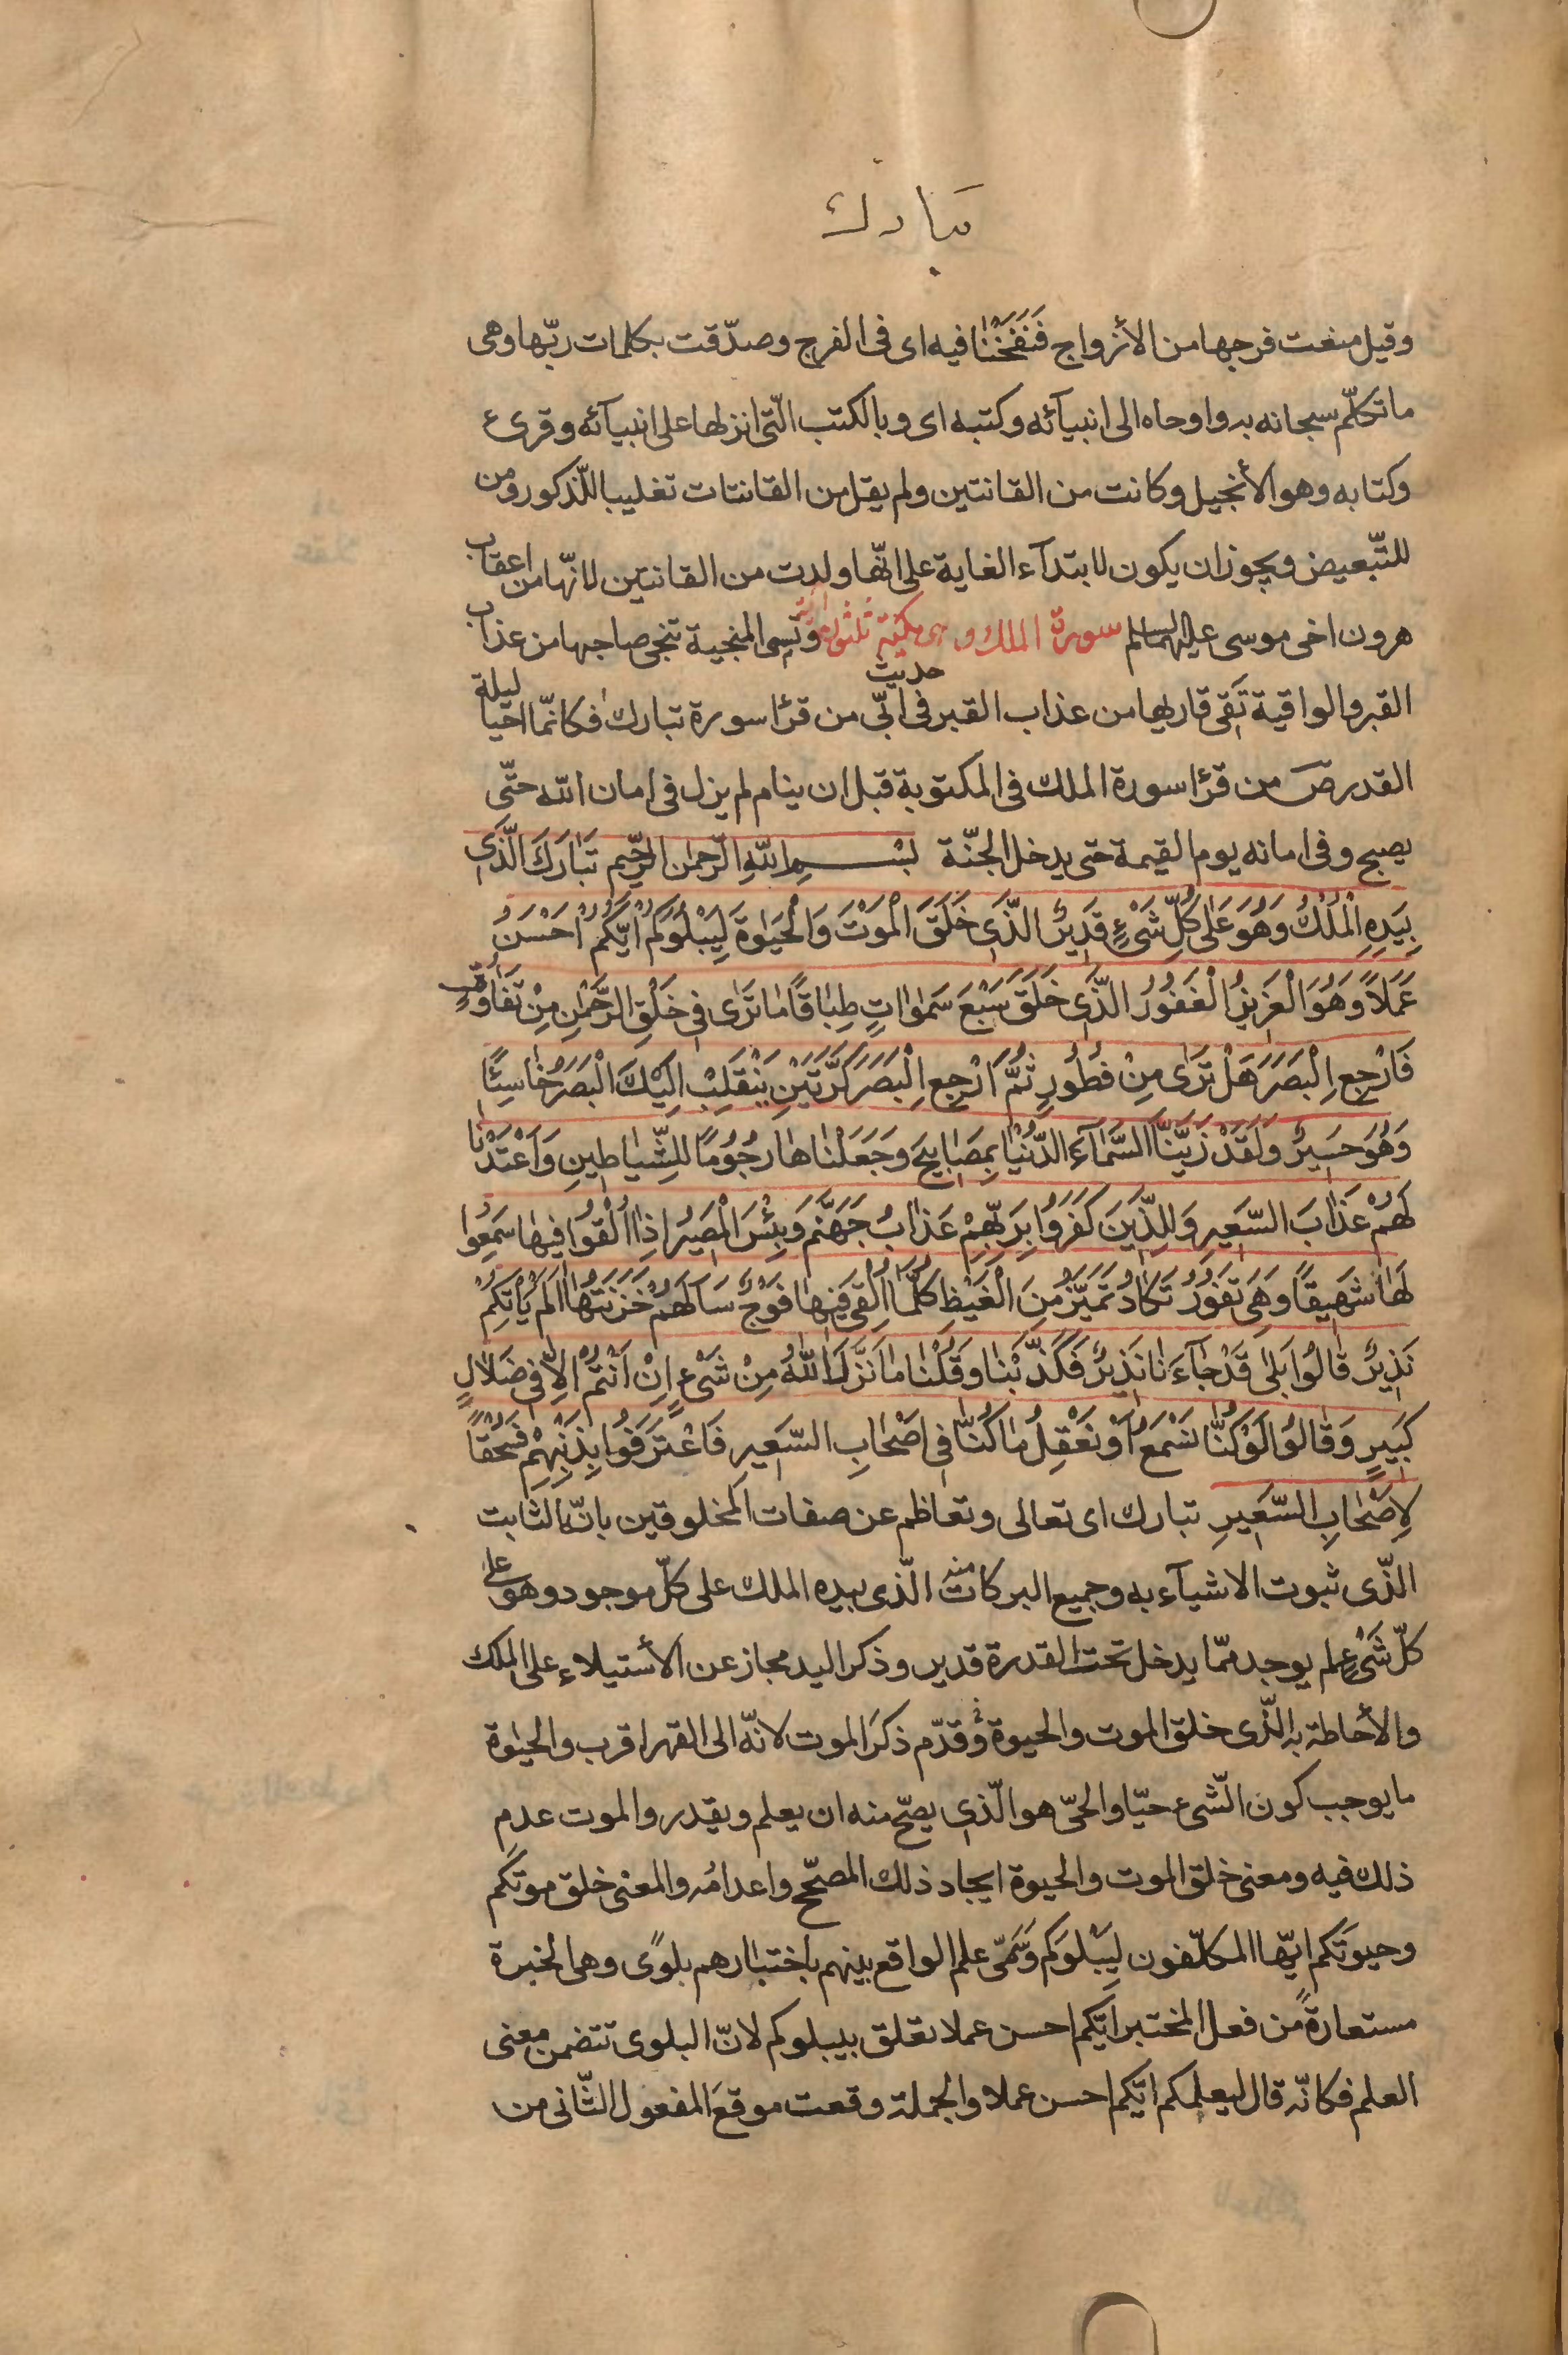 تبارك
وقيل منعت فرجها من الأزواج فَنَفَخْنا فيه اى فى الفرج وصدّقت بكلمات ربّها وهى
ما تكلّم سبحانه به واوحاه الى انبيآئه وكتبه اى وبالكتب الّتى انزلها على انبيآئه وقرىء
وكتابه وهو الأنجيل وكانت من القانتين ولم يقل من القانتات تغليبا للّذكور ومن
للتّبعيض ويجوز ان يكون لابتدآء الغاية على انّها ولدت من القانتين لانّها من اعقاب
هرون اخى موسى عليهما السلم سورة الملك وهى مكيّة ثلثون آية وتسمى المنجية تنجى صاحبها من عذاب
القبر والواقية تَقى قاريها من عذاب القبر فى حديث ابّى من قرٔا سورة تبارك فكانّما احيا ليلة
القدر صٓ من قرٔا سورة الملك فى المكتوبة قبل ان ينام لم يزل فى امان الله حتّى
يصبح وفى امانه يوم القيمة حتى يدخل الجنّة بِسْمِ اللهِ الرّحمٰن الرّحيم تَبَارَكَ الَّذى
بِيَدِهِ الْمُلْكُ وَهُوَ عَلٰى كُلِّ شَىْءٍ قَدِيرٌ الَّذى خَلَقَ الْمَوْتَ وَالْحَيٰوةَ لِيَبْلُوَكُمْ ايّكُمْ اَحْسَنُ
عَمَلاً وَهُوَ الْعَزِيزُ الْغَفُورُ الَّذى خَلَقَ سَبْعَ سَمٰوٰاتٍ طِبٰاقًا مٰا تَرٰى فى خَلْقِ الرَّحْمٰنِ مِنْ تَفٰاوُتٍ
فَارْجِعِ الْبَصَرَ هَلْ تَرٰى مِنْ فُطُورٍ ثُمَّ ارْجِعِ الْبَصَرَ كَرَّتَيْنِ يَنْقَلِبْ اِلَيْكَ الْبَصَرُ خٰاسِئًا
وَهُوَ حَسِيرٌ وَلَقَدْ زَيَّنَّا السَّمٰآءَ الدُّنْيٰا بِمَصٰابِيحَ وَجَعَلْنٰاهٰا رُجُومًا لِلشَّيٰاطِينِ وَاَعْتَدْنٰا
لَهُمْ عَذٰابَ السَّعِيرِ وَلِلَّذِينَ كَفَرُوا بِرَبِّهِمْ عَذٰابُ جَهَنَّمَ وَبِئْسَ الْمَصِيرُ اِذٰا اُلْقُوا فِيهٰا سَمِعُوا
لَهٰا شَهِيقًا وَهِىَ تَفُورُ تَكٰادُ تَمَيَّزُ مِنَ الْغَيْظِ كُلَّمٰا اُلْقِىَ فِيهٰا فَوْجٌ سَاَلَهُمْ خَزَنَتُهٰا اَلَمْ يَأْتِكُمْ
نَذِيرٌ قٰالُوا بَلٰى قَدْ جٰآءَنٰا نَذِيرٌ فَكَذَّبْنٰا وَقُلْنٰا مٰا نَزَّلَ اللهُ مِنْ شَىْءٍ اِنْ اَنْتُمْ اِلاّٰ فى ضَلٰالٍ
كَبِيرٍ وَقٰالُوا لَوْ كُنّٰا نَسْمَعُ اَوْ نَعْقِلُ مٰا كُنّٰا فى اَصْحٰابِ السَّعِيرِ فَاعْتَرَفُوا بِذَنْبِهِمْ فَسُحْقًا
لِاَصْحٰابِ السَّعِيرِ تبارك اى تعالى وتعاظم عن صفات المخلوقين بانّه الثابت
الّذى ثبوت الاشيآء به وجميع البركات منه الّذى بيده الملك على كلّ موجود وهو على
كلّ شَىْءٍ لم يوجد ممّا يدخل تحت القدرة قدير وذكر اليد مجاز عن الأستيلاء على الملك
والأحاطة به الَّذى خلق الموت والحيوة وقدّم ذكرَ الموت لانّه الى القهر اقرب والحيٰوة
ما يوجب كون الشّىء حيّا والحىّ هو الّذى يصحّ منه ان يعلم ويقدر والموت عدم
ذلك فيه ومعنى خلق الموت والحيوة ايجاد ذلك المصحّح واعدامُه والمعنى خلق موتكم
وحيوتَكم ايّها المكلّفون لِيَبْلوَكم وَسَمّى علم الواقع بينهم باختبارهم بلوًى وهى الخبرة
مستعارةً من فعل المختبر ايّكم احسن عملا تعلق بيبلوكم لانّ البلوى تتضمن معنى
العلم فكانّه قال ليعلمكم ايّكم احسن عملا والجملة وقعت موقعَ المفعول الثّانى من